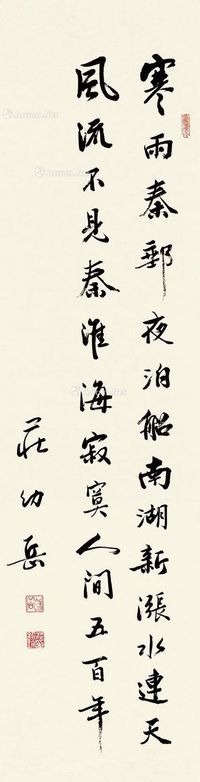 寒雨秦郵夜泊船南湖新漲水連天
風流不見秦淮海寂寞人間五百年
莊幼岳